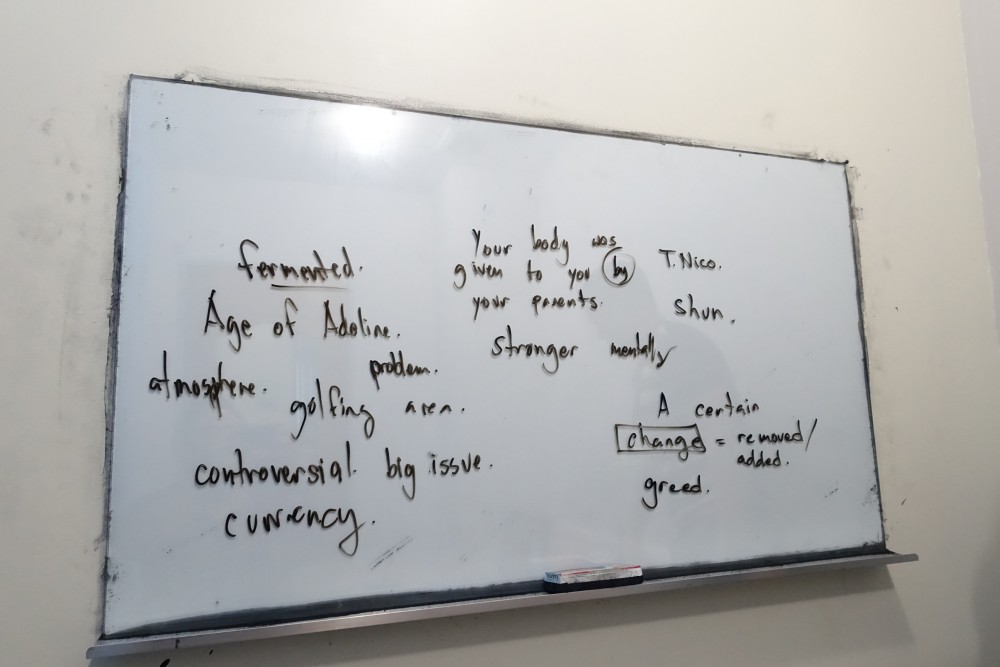 fermented.
Age of Adoline.
atmosphere.
problem.
golfing area.
controversial. big issue.
currency.
Your body was
given to you by
your parents.
stronger mentally
T. Nico.
Shun.
A certain
change = removed/
added.
greed.